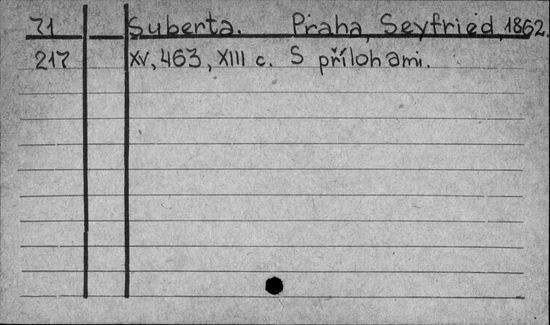 71 Šuberta. Praha, Seyfried, 1862.
217 XV, 463, XIII c. S přílohami.